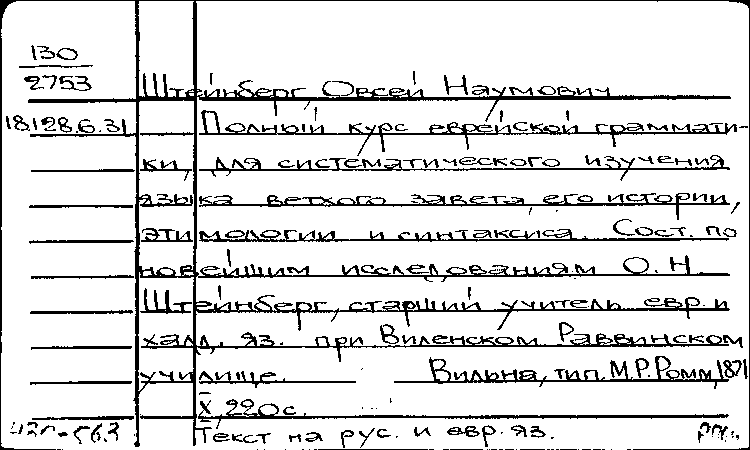 130
2753
Штейнберг, Овсей Наумович
18.128.6.31 Полный курс еврейской граммати-
ки, для систематического изучения
языка ветхого завета, его истории,
этимологии и синтаксиса. Сост. по
новейшим исследованиям О.Н.
Штейнберг, старший учитель евр. и
халд. яз. при Виленском Раввинском
училище. Вильна, тип. М.Р.Ромм, 1871
X, 220с.
Текст на рус. и евр. яз.